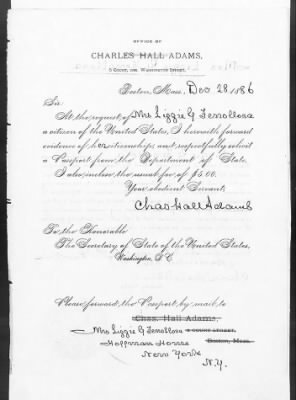 OFFICE OF
CHARLES HALL ADAMS,
5 COURT, COR. WASHINGTON STREET.
Boston, Mass. Dec 28, 1886
Sir:
At the request of Mrs Lizzie G Fenollosa
a citizen of the United States, I herewith forward
evidence of her citizenship and respectfully solicit
a Passport from the Department of State.
I also inclose the usual fee of $5.00.
Your obedient Servant,
Chas Hall Adams
To the Honorable
The Secretary of State of the United States,
Washington, D.C.
Please forward the Passport by mail to
Chas. Hall Adams,
Mrs Lizzie G Fenollosa 5 COURT STREET,
Hoffman House Boston, Mass.
New York
N.Y.